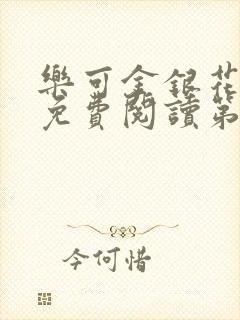 樂可金銀花
免費閱讀第
今何惜